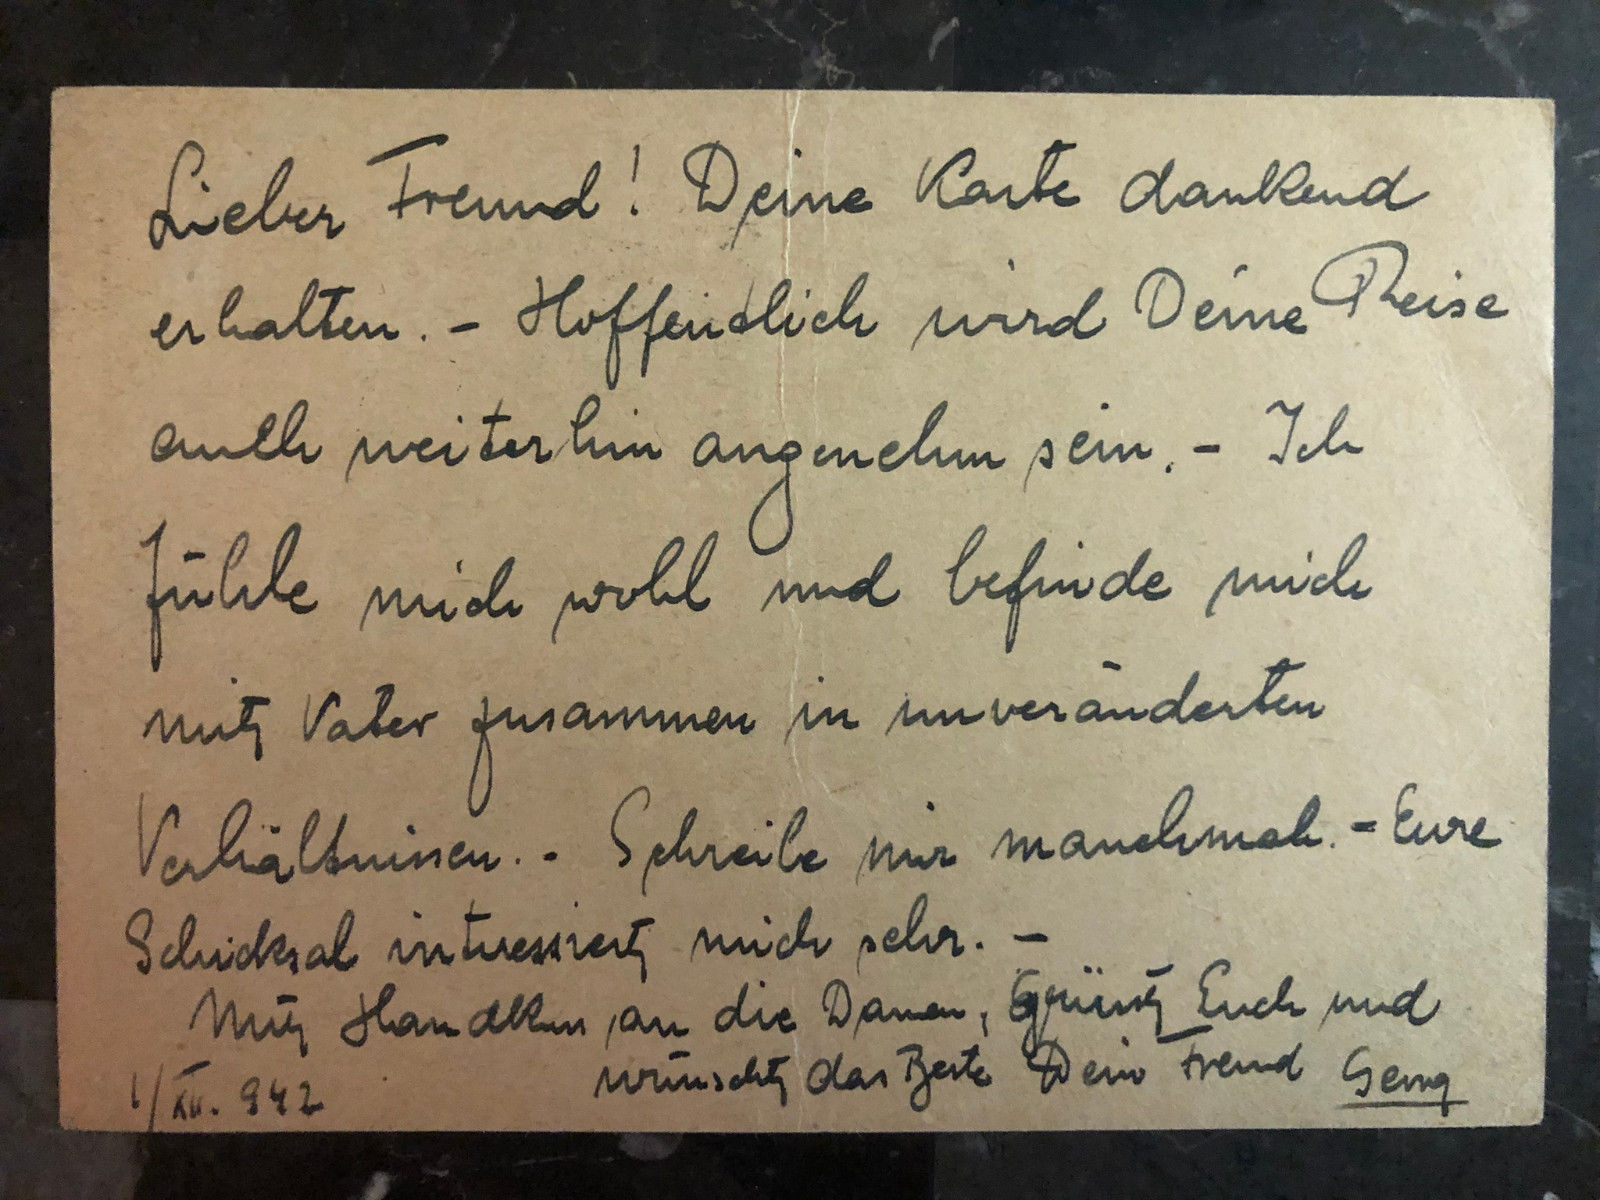 Lieber Freund! Deine Karte dankend
erhalten. - Hoffendlich wird Deine Reise
auch weiterhin angenehm sein. - Ich
fühle mich wohl und befinde mich
mit Vater zusammen in unveränderten
Verhältnissen. - Schreibe mir manchmal. - Eure
Schicksal intressiert mich sehr. -
Mit Handkuss an die Damen, Grüsst Euch und
wünscht das Beste Dein Freund
1/XII. 942